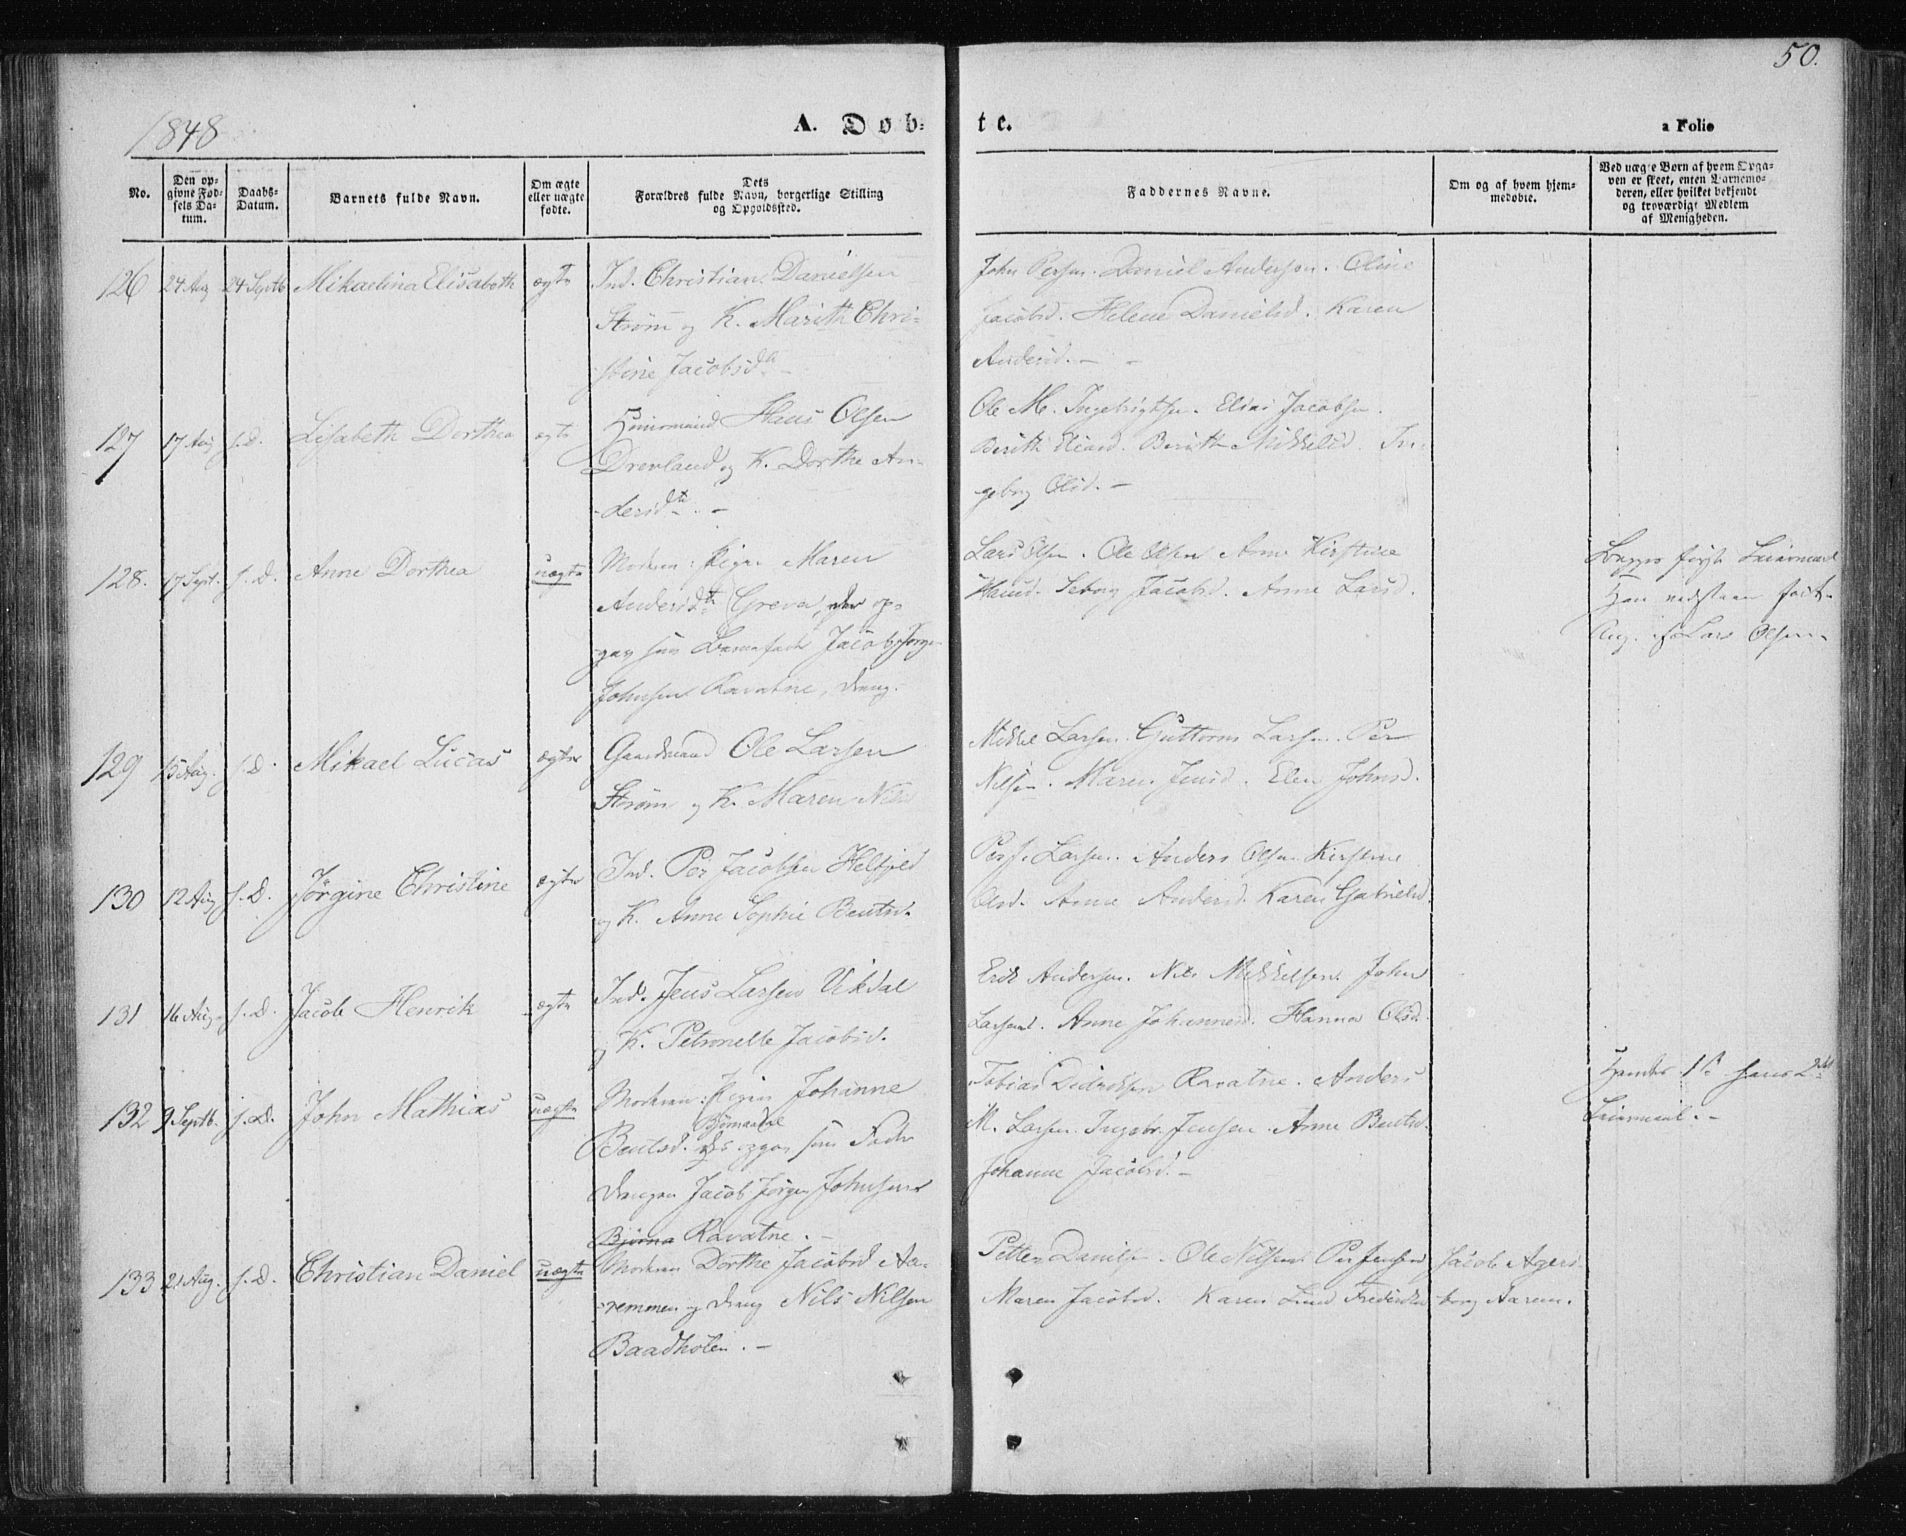 50.
1848
A. Døb-
te.
a Folio
No.
Den op-
givne Fød-
sels Da-
tum.
Daabs-
Datum.
Barnets fulde Navn.
Om ægte
eller uægte
fødte.
Dets
Forældres fulde Navn, borgerlige Stilling
og Opholdssted.
Faddernes Navne.
Om og af hvem hjem-
medøbte.
Ved uægte Børn af hvem Opga-
ven er skeet, enten Barnemo-
deren, eller hvilket bekjendt
og troværdigt Medlem
af Menigheden.
126 24 Aug 24 Septb Mikaelina Elisabeth ægte Ind. Christian Danielsen
Strøm og K. Marith Chri-
stine Jacobsd. -
John Persen. Daniel Andersen. Oline
Jacobsd. Helene Danielsd. Karen
Andersd. -
127 17 Aug s. D. Lisabeth Dorthea ægte Huusmand Hans Olsen
Drevland og K. Dorthe An-
dersd. -
Ole M. Ingebrigtsen. Elias Jacobsen.
Berith Eliasd. Berith Mikkelsd. In-
geborg Olsd. -
128. 17 Sept. s. D. Anne Dorthea uægte Moderen: Pigen Maren
Andersd. Greva, der op-
gav som Barnefader Jacob Jørgen
Johnsen Ravatne, dreng.
Lars Olsen. Ole Olsen Anne Kirstine
Hansd. Seborg Jacobsd. Anne Larsd.
Begges første Leiermaal
Lars Olsen.
129 15 Aug. s. D. Mikael Lucas ægte Gaardmand Ole Larsen
Strøm og K. Maren Nilsd
Mikkel Larsen. Guttorm Larsen. Per
Nilsen. Maren Jensd. Elen Johnsd.
130 12 Aug s. D. Jørgine Christine ægte Ind. Per Jacobsen Helfjeld
og K. Anne Sophie Bentsd.
Per J. Larsen. Anders Olsen. Kirstine
Olsd. Anne Andersd. Karen Gabrielsd.
131 16 Aug. s. D. Jacob Henrik ægte Ind. Jens Larsen Vikdal
og K. Petronelle Jacobsd.
Erik Andersen. Nils Mikkelsen. John
Larsen. Anne Johannesd. Hanna Olsd.
132 9 Septb. s. D. John Mathias uægte Moderen: Pigen Johanne
Bentsd. Bjømaadal opgav som Fader
drengen Jacob Jørgen Johnsen
Bjørnaa Ravatne. -
Tobias Didriksen Ravatne. Anders
M. Larsen. Ingebr. Jensen. Anne Bentsd.
Johanne Jacobsd. -
Hendes 1ste hans 2det
Leiermaal. -
133 21 Aug. s. D. Christian Daniel uægte Moderen Dorthe Jacobsd Aa-
remmen og dreng Nils Nilsen
Baadholen. -
Petter Daniels. Ole Nilsen Per Jensen
Maren Jacobsd. Karen Lund Frederiksd
Jacob Agers-
borg Aarem.